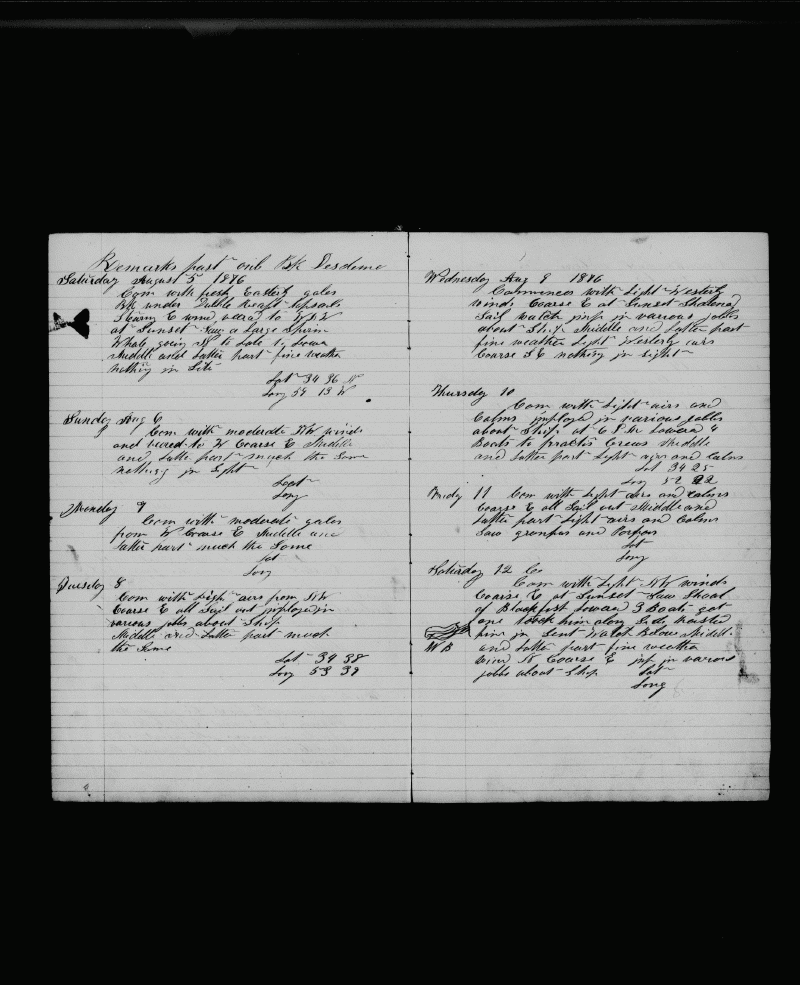 Remarks past onb Bk Desdemo
Saturday August 5 1876
Com with fresh Easterly gales
Bk under Dubble reaft topsails
Stearing E wind veard to
at Sunset Saw a Large Sperm
Whale going to Late to Lowa
Middle and Latter part fine weather
nothing in Site
Lat 34 36 N
Long 54 13 W
Sunday Aug 6
Com with moderate NW winds
and veard to W Coarse E Middle
and Latter part much the Same
nothing in Sight
Lat
Long
Monday 7
Com with moderate gales
from W Coarse E Middle and
Latter part much the Same
Lat
Long
Tuesday 8
Com with Light airs from NW
Coarse E all Sail out imployed in
various jobs about Ship
Middle and Latter part much
the Same
Lat 34 38
Long 53 39
Wednesday Aug 9 1876
Commences with Light Westerly
winds Coarse E at Sunset Shortened
Sail watch imp in various jobbs
about Ship Middle and Latter part
fine weather Light Westerly airs
Coarse SE nothing in Sight
Thursday 10
Com with Light airs and
Calms imployed in various jobbs
about Ship at 6 P M Lowered 4
Boats to practis Crews Middle
and Latter part Light airs and Calms
Lat 34 25
Long 52 22
Friday 11 Com with Light airs and Calms
Coarse E all Sail out Middle and
Latter part Light airs and Calms
Saw grampus and Porpas
Lat
Long
Saturday 12
Com with Light NW winds
Coarse E at Sunset Saw Shoal
of Blackfish Lowerd 3 Boats got
one took him along Side hoisted
him in Sent watch Below Middle
W B and Latter part fine weather
wind N Coarse E imp in various
jobbs about Ship
Lat
Long